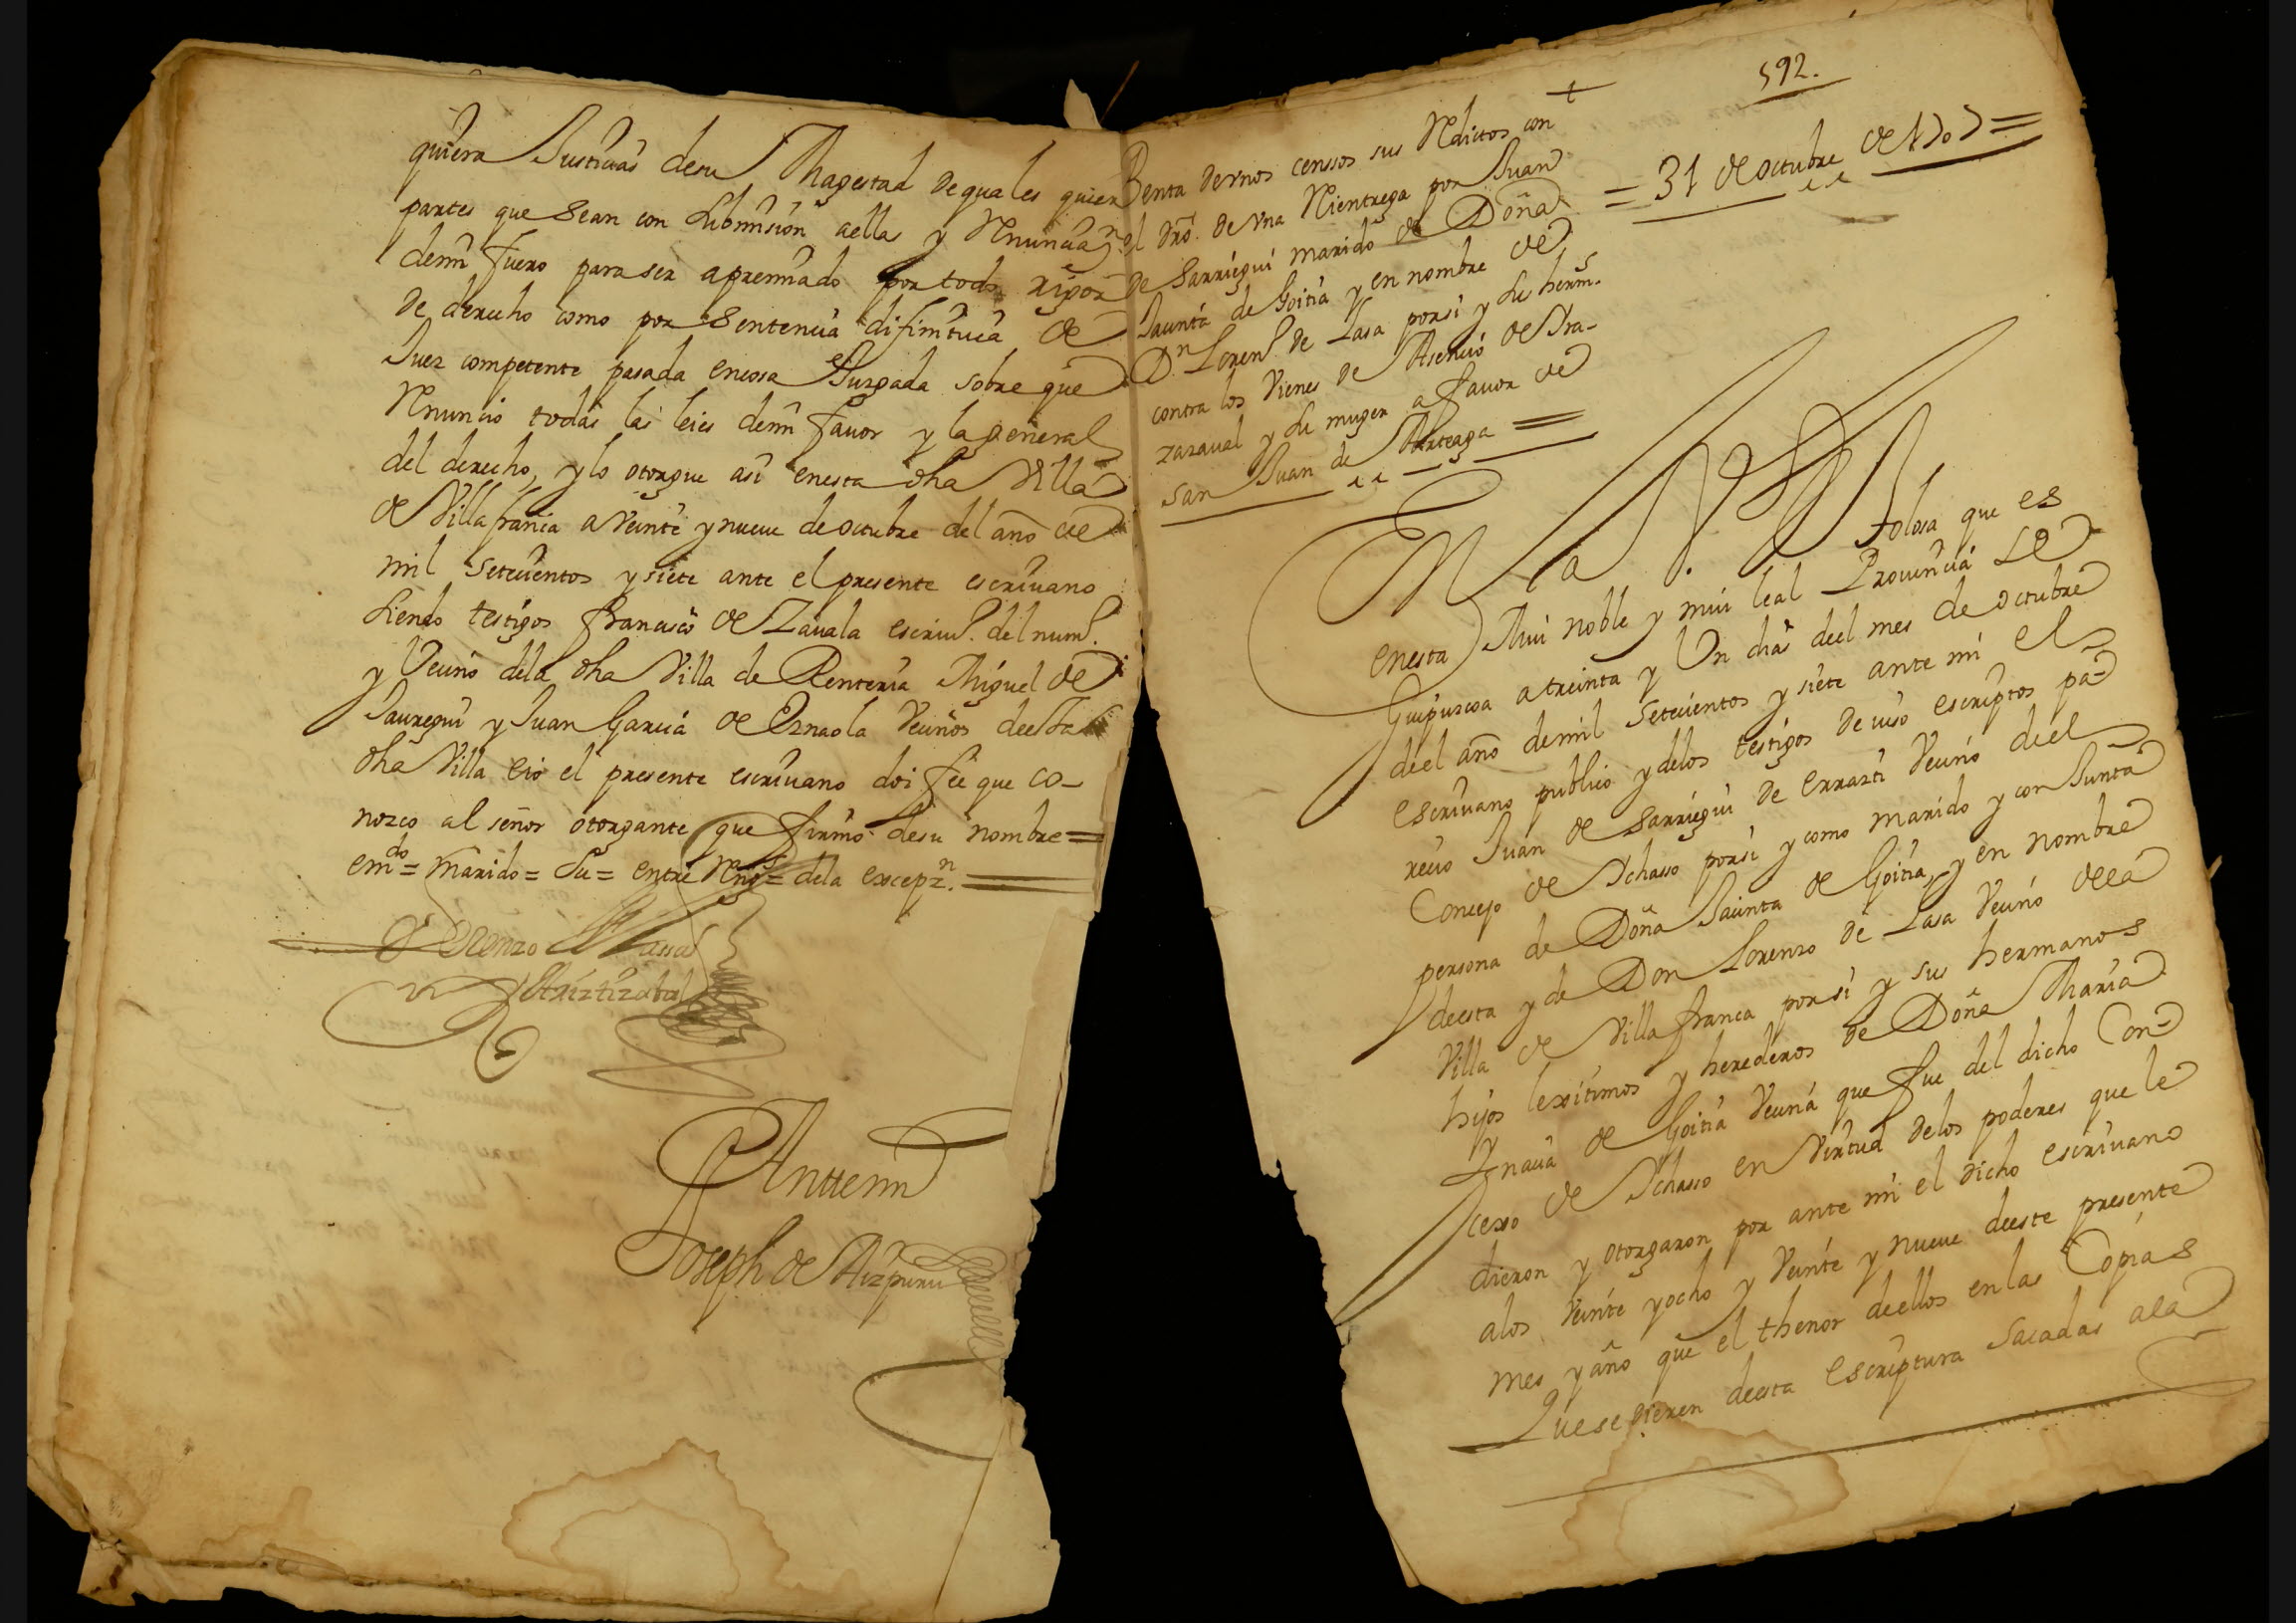 quiera Justicias desu Magestad de quales quier
partes que sean con submision aellas y Renunciaon.
demi fuero para ser apremiado por todo rigor
de derecho como por sentencia difinitiua de
Juez competente pasada encosa Juzgada sobre que
Renuncio todas las leies demi fauor y la general
del derecho, y lo otorgue asi enesta dha Villa
de Villafranca a Veinte y nueue de octubre del año de
mil setecientos y siete ante el presente escriuano
siendo testigos francisco de Zauala escriuo. del numo.
y Vecino dela dha Villa de Renteria Miguel de
Jauregui y Juan Garcia de Ernaola Vecinos deesta
dha Villa eio el presente escriuano doi fee que co-
nozco al señor otorgante que firmo desu nombre=
emdo= marido= Su= entre Rens= dela excepzn.=
Lorenzo Lassa
Ariztizabal
Antemi
Joseph de Aizpuru
592.
Benta de vnos censsos sus Reditos con
el dro. de vna Rientrega por Juan
de Sarriegui marido de Doña
Jacinta de Goitia y en nombre de
Dn. Loreno. de Lasa porsi y su herms.
contra los Vienes de Asencio de Ara-
zaraual y su muger a fauor de
San Juan de Arteaga=
= 31 de octubre de 1707=
En la Va. de Tolosa que es
enesta Mui noble y mui leal Prouincia de
Guipuscoa atreinta y Un dias deel mes de octubre
deel año demil setecientos y siete ante mi el
escriuano publico y delos testigos de iuso escriptos pa-
recio Juan de Sarriegui de errazti Vecino deel
Concejo de Ichasso porsi y como marido y con Junta
persona de Doña Jacinta de Goitia, y en nombre
deesta y de Don Lorenzo de Lasa Vecino deea
Villa de Villafranca porsi y sus hermanos
hijos lexitimos y herederos de Doña Maria
Ynacia de Goitia Vecina que fue del dicho Con-
cexo de Ichasso en Virtud delos poderes que le
dieron y otorgaron por ante mi el dicho escriuano
alos Veinte yocho y Veinte y nueue deeste presente
mes yaño que el thenor deellos enlas Copias
que se dieren deesta escriptura sacadas alea